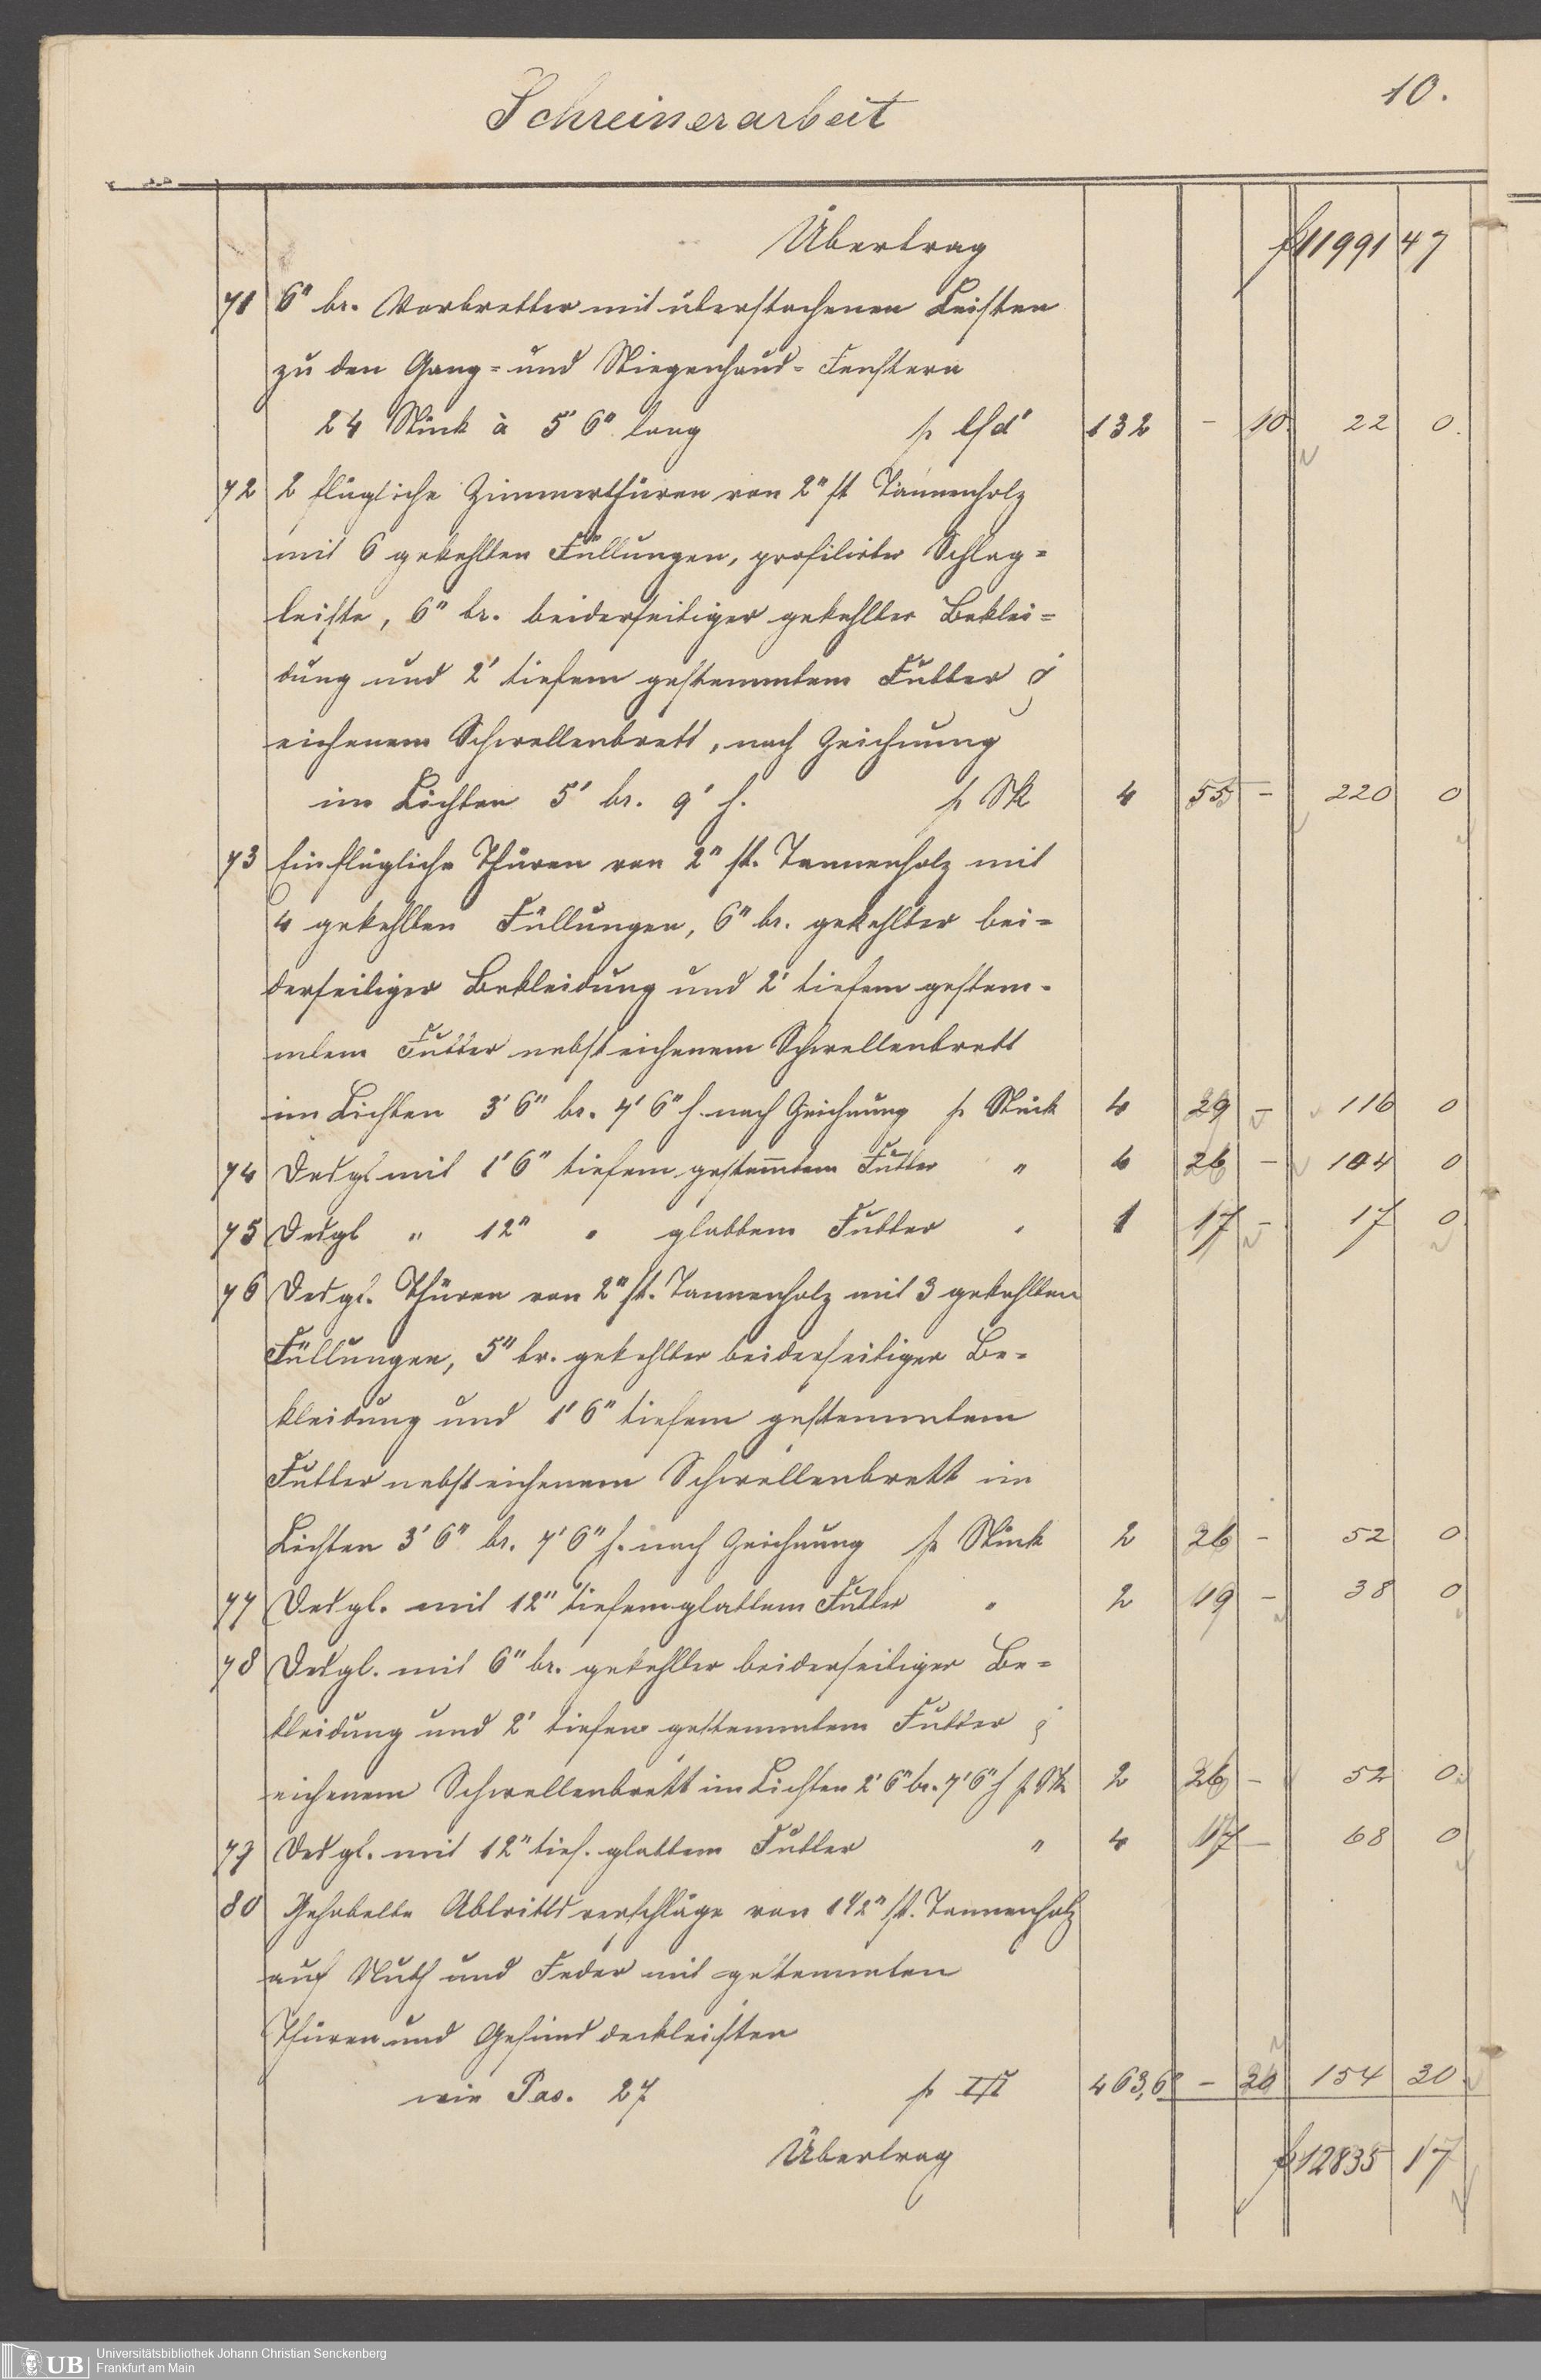 10.
Schreinerarbeit
Übertrag f 11991 47
71 6" br. Vorbretter mit überstochenen Leisten
zu den Gang= und Stiegenhaus= Fenstern
24 Stück à 5' 6" lang p lfd' 132 - 10. 22 0.
72 2 flügliche Zimmerthüren von 2" st Tannenholz
mit 6 gekehlten Füllungen, profilirter Schlag=
leiste, 6" br. beiderseitiger gekehlter Beklei=
dung und 2' tiefem gestemmtem Futter &
eichenem Schwellenbrett, nach Zeichnung
im Lichten 5' br. 9' h. p Stk 4 55 - 220 0
73 Einflügliche Thüren von 2" st. Tannenholz mit
4 gekehlten Füllungen, 6" br. gekehlter bei=
derseitiger Bekleidung und 2' tiefem gestem=
mtem Futter nebst eichenem Schwellenbrett
im Lichten 3' 6" br. 7' 6" h. nach Zeichnung p Stück 4 29 - 116 0
74 Desgl mit 1' 6" tiefem gestem̄tem Futter " 4 26 - 104 0
75 Desgl " 12" " glattem Futter " 1 17 - 17 0
76 Desgl. Thüren von 2" st. Tannenholz mit 3 gekehlten
Füllungen, 5" br. gekehlter beiderseitiger Be=
kleidung und 1' 6" tiefem gestemmtem
Futter nebst eichenem Schwellenbrett im
Lichten 3' 6" br. 7' 6" h. nach Zeichnung p Stück 2 26 - 52 0
77 Desgl. mit 12" tiefem glattem Futter " 2 19 - 38 0
78 Desgl. mit 6" br. gekehlter beiderseitiger Be=
kleidung und 2' tiefem gestemmtem Futter &
eichenem Schwellenbrett im Lichten 2' 6" br. 7' 6" h p Stk 2 26 - 52 0.
79 Desgl. mit 12" tief. glattem Futter " 4 17 - 68 0
80 Gehobelte Abtrittsverschläge von 1 1/2" st. Tannenholz
auf Nuth und Feder mit gestemmten
Thüren und Gesims deckleisten
wie Pos. 27 p 463,6 - 20 154 30
Übertrag f 12835 17
UB Universitätsbibliothek Johann Christian Senckenberg
Frankfurt am Main